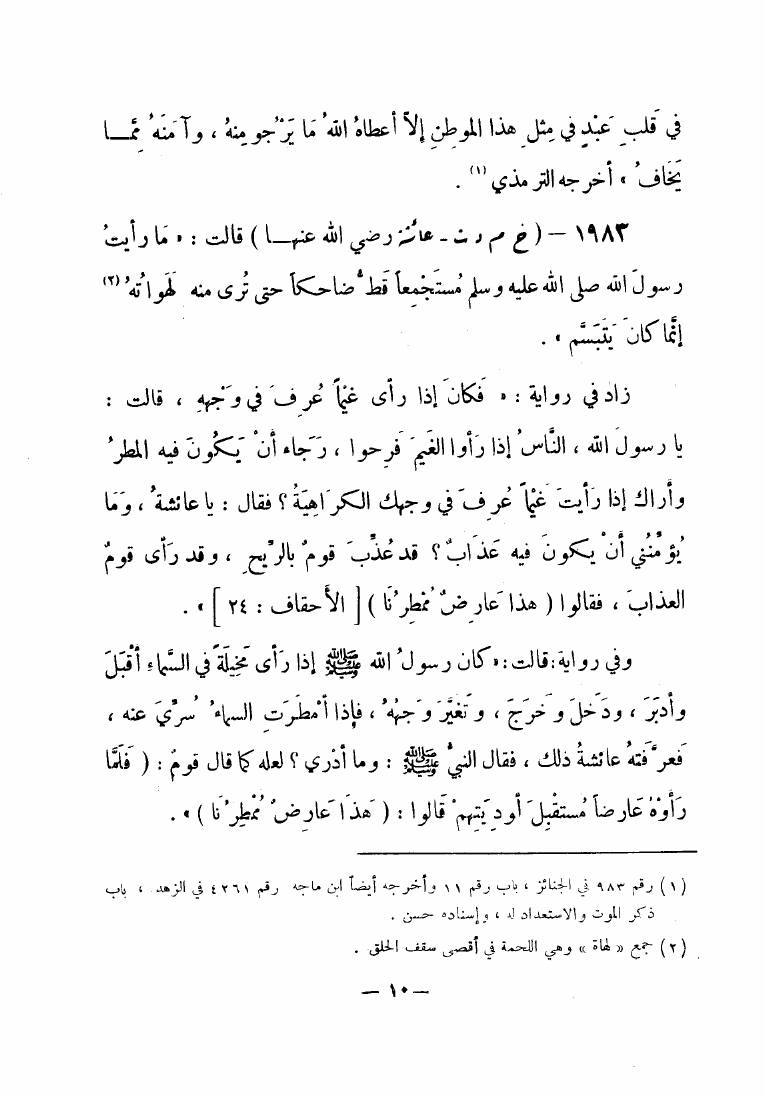 في قَلبِ عَبْدٍ في مِثلِ هذا الموطنِ إلاَّ أعطاهُ اللهُ مَا يَرْجُو مِنهُ ، وآمَنَهُ مِمَّـــا
يَخَافُ » أخرجه الترمذي (١) .
١٩٨٣ – ( خ م د ت - عائشة رضي الله عنهـــا ) قالت : « مَا رأيتُ
رسولَ الله صلى الله عليه وسلم مُستَجْمِعاً قَطُّ ضاحكاً حتى تُرى منه لَهَواتُهُ (٢)
إنَّما كانَ يَتَبَسَّم » .
زاد في رواية : « فكانَ إذا رأى غَيْماً عُرِفَ في وَجْهِهِ ، قالت :
يا رسولَ الله ، النَّاسُ إذا رَأوا الغَيمَ فَرِحوا ، رَجَاء أنْ يَكُونَ فيه المطرُ
وأراك إذا رَأيتَ غَيْماً عُرِفَ في وجهك الكرَاهِيَةُ ؟ فقال : يا عائشةُ ، وَمَا
يُؤمِّنُني أنْ يكونَ فيه عَذَابٌ ؟ قد عُذِّبَ قومٌ بالرِّيحِ ، وقد رَأى قومٌ
العذابَ ، فقالوا ( هذا عَارِضٌ مُمْطِرُنَا ) [ الأحقاف : ٢٤ ] » .
وفي رواية : قالت : « كان رسولُ الله ﷺ إذا رَأى مَخِيلَةً في السَّماءِ أقْبَلَ
وأدبَرَ ، ودَخَلَ وخَرَجَ ، وتَغَيَّرَ وَجهُهُ ، فإذا أمْطَرَتِ السماءُ سُرِّيَ عنه ،
فَعرَّفَتهُ عائشةُ ذلك ، فقال النبيُّ ﷺ : وما أدْري ؟ لعله كما قال قومٌ : ( فَلَمَّا
رَأَوْهُ عَارضاً مُستَقْبِلَ أودِيَتِهِمْ قَالوا : ( هَذَا عَارِضٌ مُمْطِرُنَا ) » .
(١) رقم ٩٨٣ في الجنائز ، باب رقم ١١ وأخرجه أيضاً ابن ماجه رقم ٤٢٦١ في الزهد ، باب
ذكر الموت والاستعداد له ، وإسناده حسن .
(٢) جمع « لهاة » وهي اللحمة في أقصى سقف الحلق .
— ١٠ —